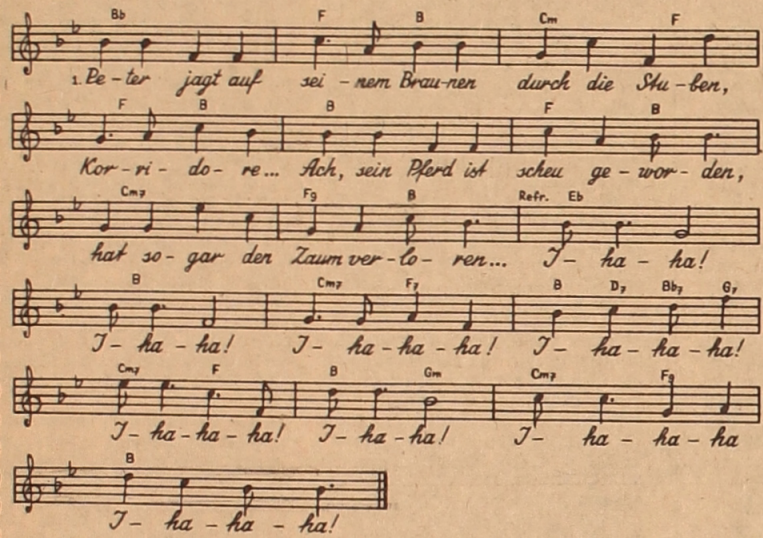 Bb F B Cm F
1. Pe-ter jagt auf sei-nem Brau-nen durch die Stu-ben,
F B B F B
Kor-ri-do-re... Ach, sein Pferd ist scheu ge-wor-den,
Cm7 F9 B Refr. Eb
hat so-gar den Zaum ver-lo-ren... I-ha-ha!
B Cm7 F7 B D7 Bb7 G7
I-ha-ha! I-ha-ha-ha! I-ha-ha-ha!
Cm7 F B Gm Cm7 F9
I-ha-ha-ha! I-ha-ha! I-ha-ha-ha
B
I-ha-ha-ha!